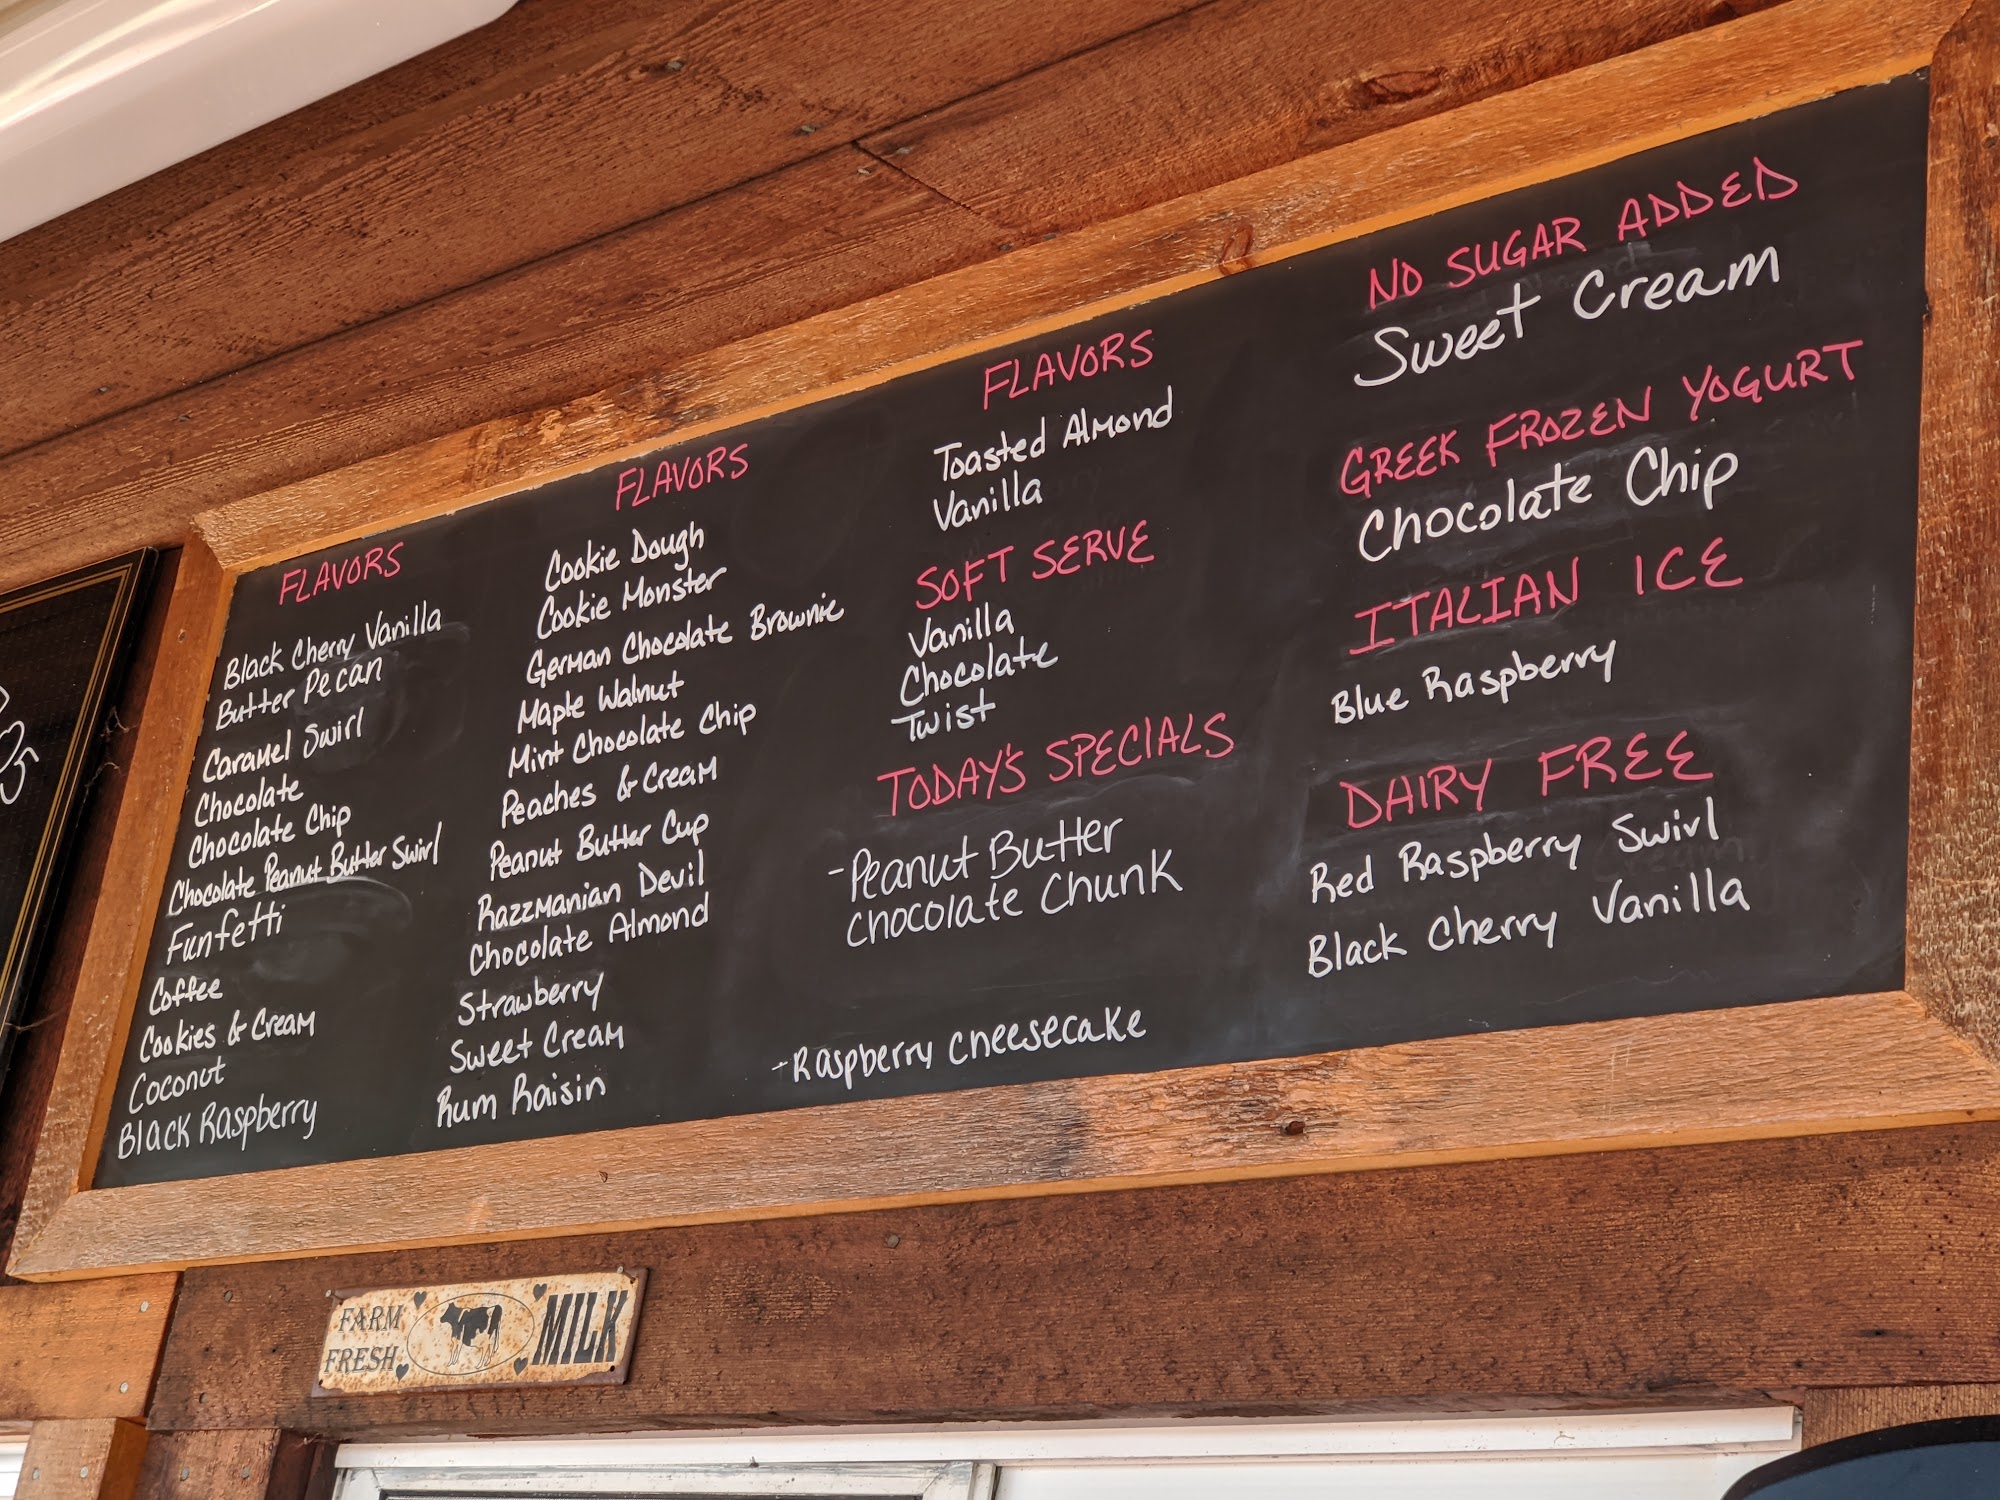 FLAVORS
Black Cherry Vanilla
Butter Pecan
Caramel Swirl
Chocolate
Chocolate Chip
Chocolate Peanut Butter Swirl
Funfetti
Coffee
Cookies & Cream
Coconut
Black Raspberry
FLAVORS
Cookie Dough
Cookie Monster
German Chocolate Brownie
Maple Walnut
Mint Chocolate Chip
Peaches & Cream
Peanut Butter Cup
Razzmanian Devil
Chocolate Almond
Strawberry
Sweet Cream
Rum Raisin
FLAVORS
Toasted Almond
Vanilla
SOFT SERVE
Vanilla
Chocolate
Twist
TODAY'S SPECIALS
-Peanut Butter
Chocolate Chunk
-Raspberry Cheesecake
NO SUGAR ADDED
Sweet Cream
GREEK FROZEN YOGURT
Chocolate Chip
ITALIAN ICE
Blue Raspberry
DAIRY FREE
Red Raspberry Swirl
Black Cherry Vanilla
FARM
FRESH
MILK